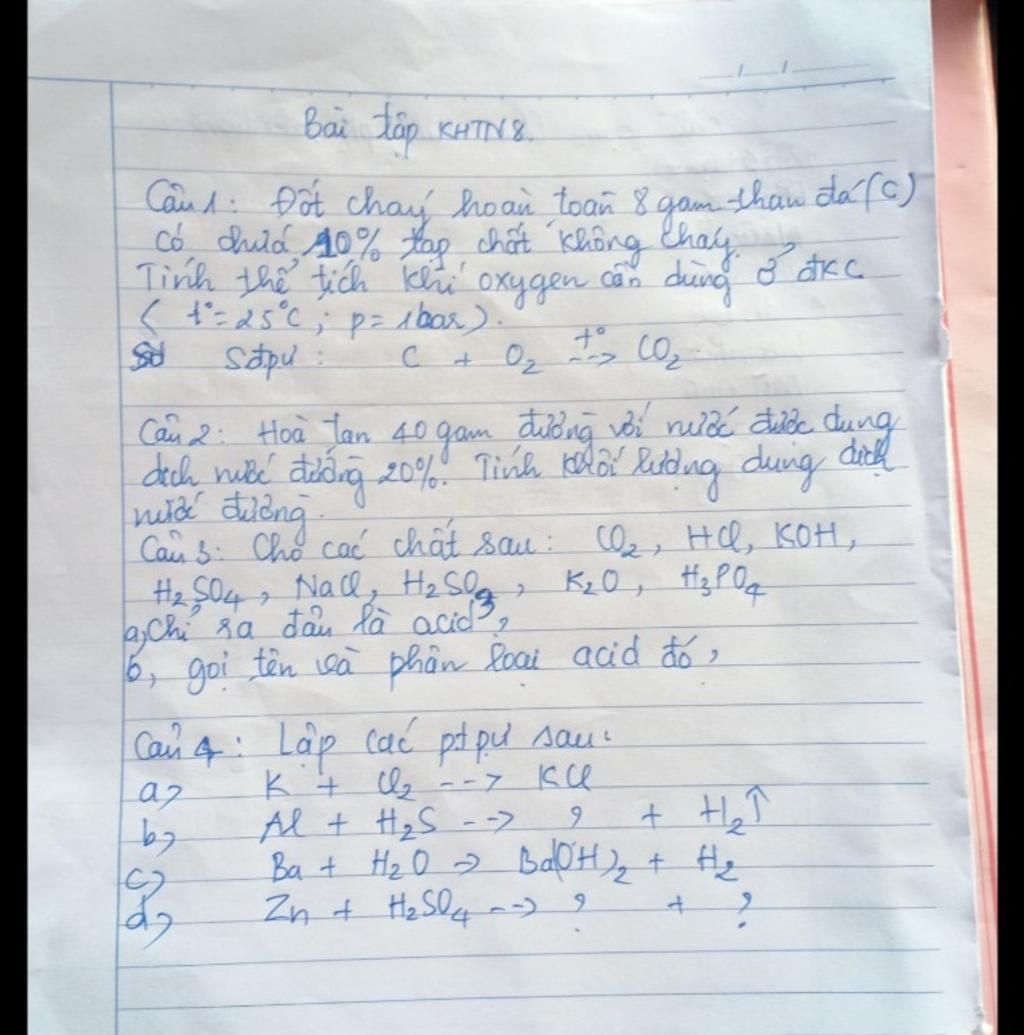 Bài tập KHTN 8.
Câu 1: Đốt cháy hoàn toàn 8 gam than đá (C)
có chứa 10% tạp chất không cháy.
Tính thể tích khí oxygen cần dùng ở đkc
( t° = 25°C ; p = 1 bar ).
Sđpư : C + O₂ --t°--> CO₂
Câu 2: Hoà tan 40 gam đường với nước được dung
dịch nước đường 20%. Tính khối lượng dung dịch
nước đường.
Câu 3: Cho các chất sau : CO₂, HCl, KOH,
H₂SO₄, NaCl, H₂SO₃, K₂O, H₃PO₄
a, Chỉ ra đâu là acid ?
b, gọi tên và phân loại acid đó ?
Câu 4 : Lập các ptpư sau :
a> K + Cl₂ --> KCl
b> Al + H₂S --> ? + H₂↑
c> Ba + H₂O => Ba(OH)₂ + H₂
d> Zn + H₂SO₄ --> ? + ?